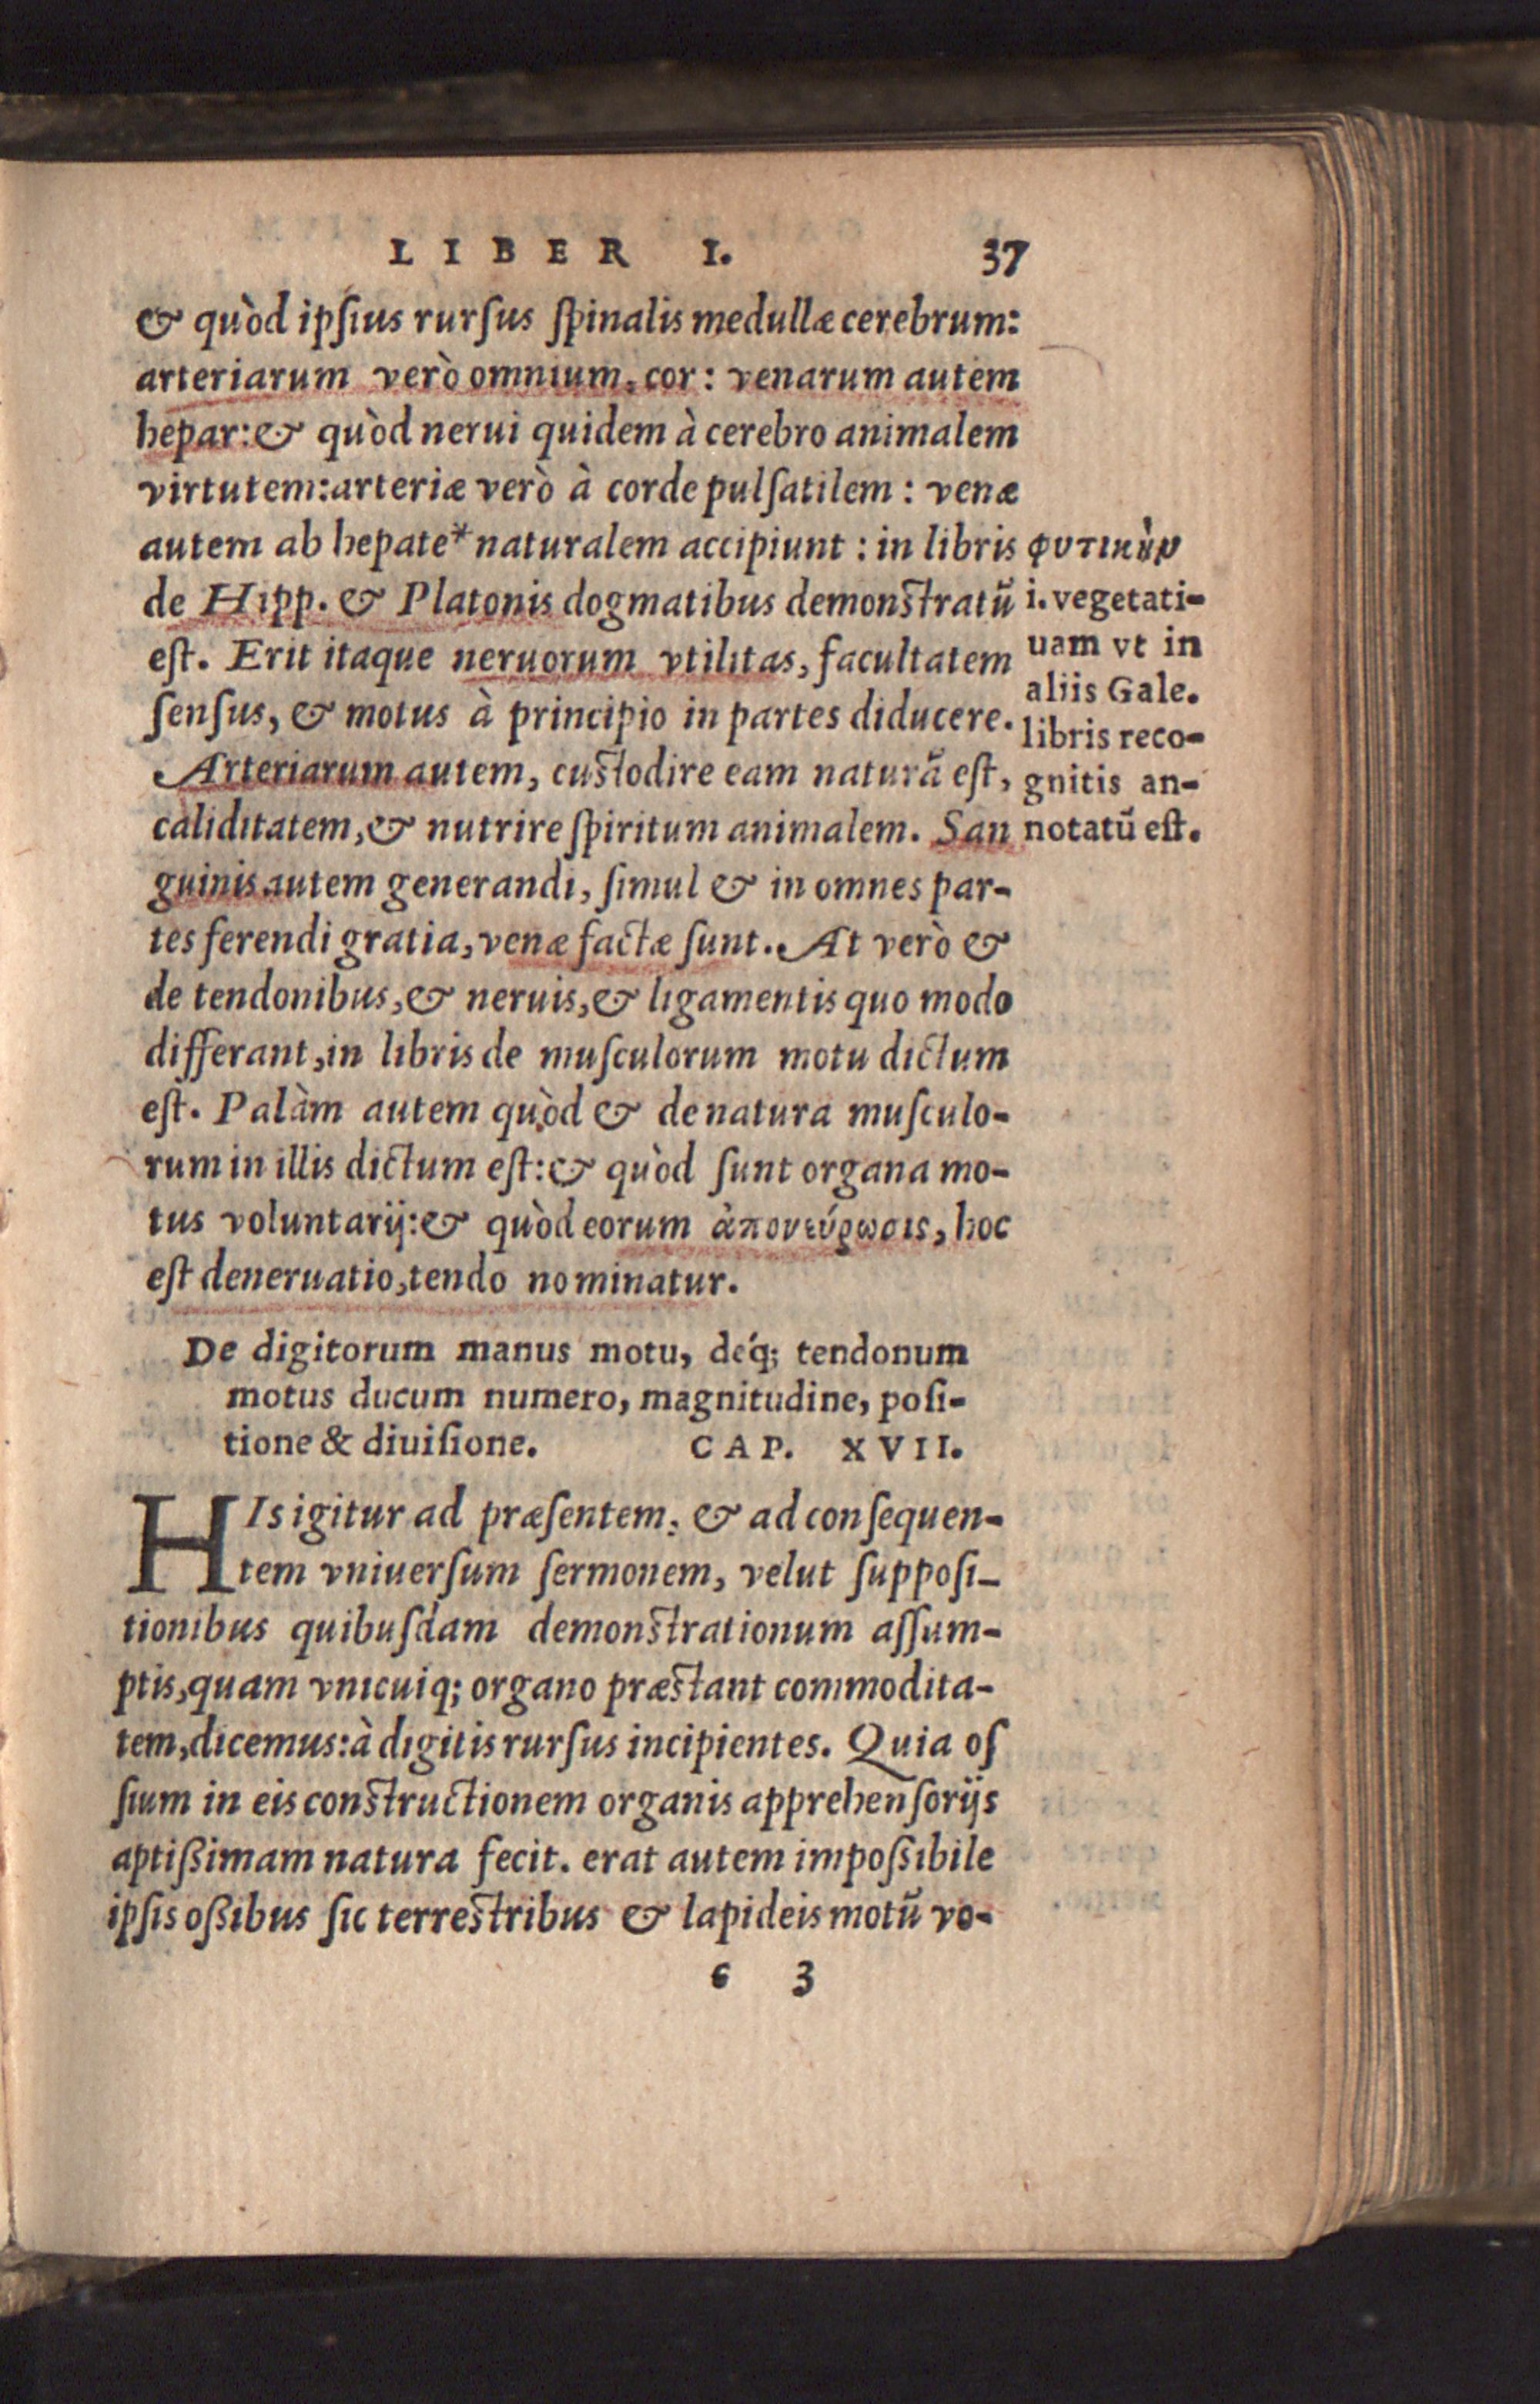 LIBER I. 37
& quòd ipſius rurſus ſpinalis medullæ cerebrum:
arteriarum verò omnium, cor: venarum autem
hepar: & quòd nerui quidem à cerebro animalem
virtutem: arteriæ verò à corde pulſatilem: venæ
autem ab hepate* naturalem accipiunt: in libris
de Hipp. & Platonis dogmatibus demonſtratū
eſt. Erit itaque neruorum vtilitas, facultatem
ſenſus, & motus à principio in partes diducere.
Arteriarum autem, cuſtodire eam naturā eſt,
caliditatem, & nutrire ſpiritum animalem. San
guinis autem generandi, ſimul & in omnes par-
tes ferendi gratia, venæ factæ ſunt. At verò &
de tendonibus, & neruis, & ligamentis quo modo
differant, in libris de muſculorum motu dictum
eſt. Palàm autem quòd & de natura muſculo-
rum in illis dictum eſt: & quòd ſunt organa mo-
tus voluntarij: & quòd eorum ἀπονεύρωσις, hoc
eſt deneruatio, tendo nominatur.
φυτικὴν
i. vegetati-
uam vt in
aliis Gale.
libris reco-
gnitis an-
notatū eſt.
De digitorum manus motu, déq; tendonum
motus ducum numero, magnitudine, poſi-
tione & diuiſione. CAP. XVII.
HIs igitur ad præſentem, & ad conſequen-
tem vniuerſum ſermonem, velut ſuppoſi-
tionibus quibuſdam demonſtrationum aſſum-
ptis, quam vnicuiq; organo præſtant commodita-
tem, dicemus: à digitis rurſus incipientes. Quia oſ
ſium in eis conſtructionem organis apprehenſorijs
aptiſsimam natura fecit. erat autem impoſsibile
ipſis oſsibus ſic terreſtribus & lapideis motū vo-
c 3